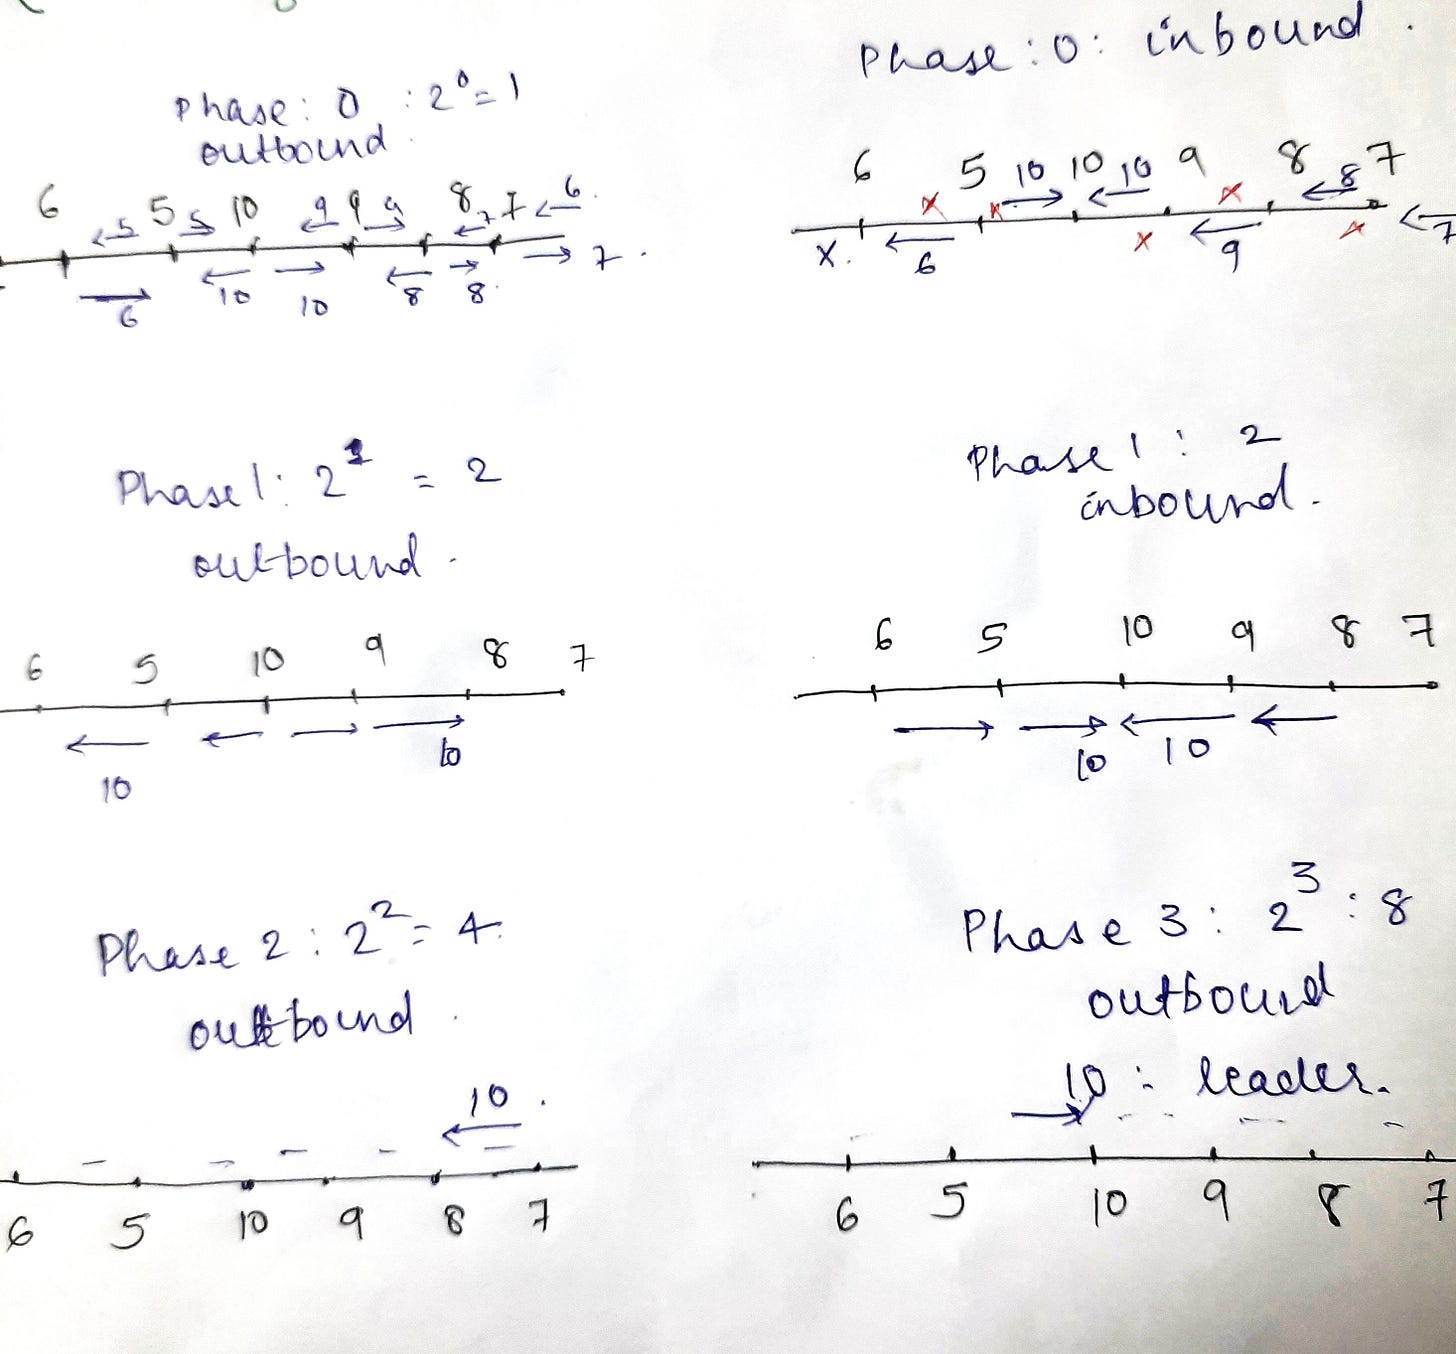 Phase: 0 : 2⁰ = 1
outbound.
6 5 10 9 8 7
5 5 9 9 7 6
6 10 10 8 8 7.
Phase: 0: inbound.
6 5 10 10 10 9 8 8 7
x x
x. 6 x 9 x 7
x
Phase 1: 2¹ = 2
outbound.
6 5 10 9 8 7
10 10
Phase 1: 2
inbound.
6 5 10 9 8 7
10 10
Phase 2: 2² = 4.
outbound.
10.
6 5 10 9 8 7
Phase 3: 2³ : 8
outbound
10: leader.
6 5 10 9 8 7